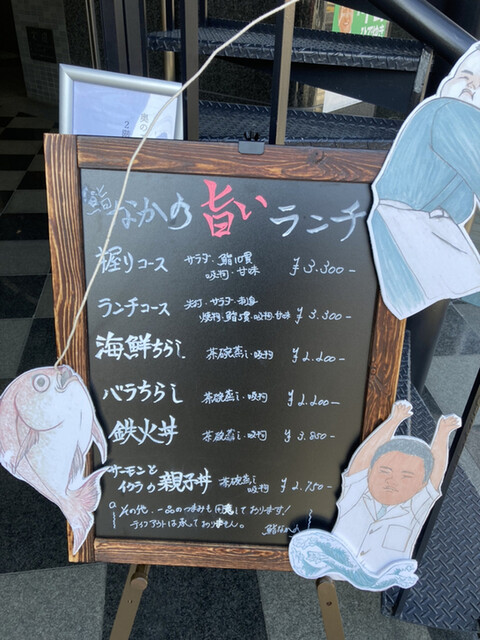 鮨なかの 旨い ランチ
握りコース サラダ・鮨10貫 ¥3.300-
吸物・甘味
ランチコース サラダ・
焼物・鮨 貫・吸物・甘味 ¥3.300-
海鮮ちらし 茶碗蒸し・吸物 ¥2.200-
バラちらし 茶碗蒸し・吸物 ¥2.200-
鉄火丼 茶碗蒸し・吸物 ¥3.850-
サーモンと
イクラの親子丼 茶碗蒸し ¥2.750-
吸物
その他、一品のつまみも用意しております!
テイクアウトは承しておりません。
鮨なかの